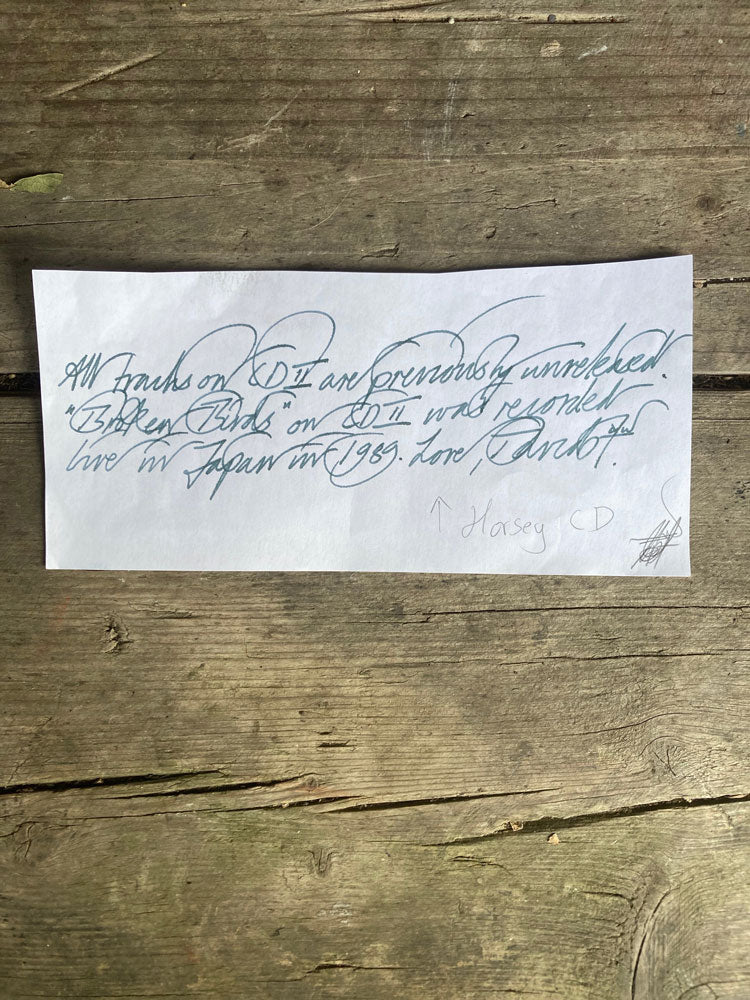 All tracks on CD II are previously unreleased.
"Broken Birds" on CD II was recorded
live in Japan in 1989. Love, David
↑ Horsey CD